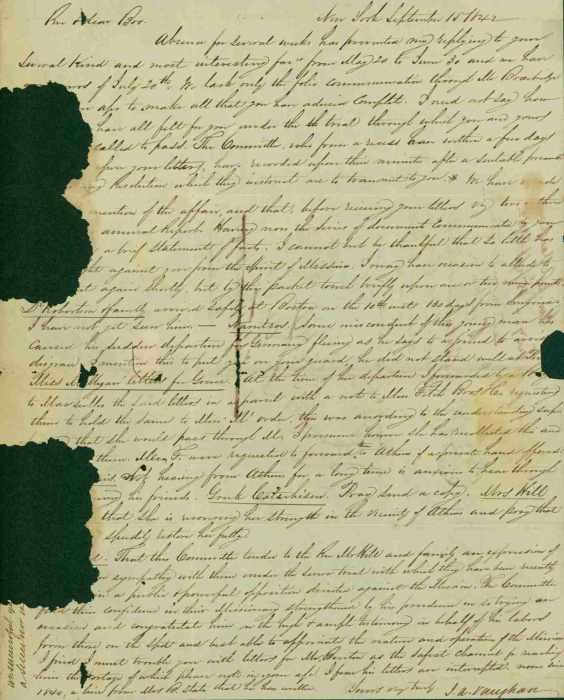 Rev & dear Bro. New York September 15 1842
Absence for several weeks has prevented my replying to your
several kind and most interesting fav's from May 20 to June 30 and we have
of July 20th. We lack only the folio communication through Mr
to make all that you have adviced complete. I need not say how
have all felt for you under the trial through which you and yours
called to pass. The Committee, who from a recess have within a few days
your letters, have recorded upon their minutes after a suitable preamble
Resolution which they instruct me to transmit to you. * We have made
mention of the affair, and that, before receiving your letters
annual Report. Having now the series of documents communicated by you
a brief statement of facts. I cannot but be thankful that so little has
against you from the Spirit of Missions. I may have occasion to allude to
it again shortly, but by this packet touch briefly upon one or two
Dr Robertson & family arrived safely at Boston on the 10th inst 130 days from Smyrna.
I have not yet seen him. — Some misconduct of this young man has
caused his sudden departure for Germany fleeing as he says to a friend to avoid
disgrace. I mention this to put you on your guard, he did not stand well
Miss Mulligan letters for Greece. At the time of her departure I forwarded
to Marseilles the said letters in a parcel with a note to Messrs Fitch Bros & Co requesting
them to hold the same to Miss M' order, this was according to the understanding
that she would pass through M. I presume however she has recollected this and
them. Messrs F. were requested to forward to Athens if a private hand offered
not hearing from Athens for a long time is anxious to hear through
his friends. Greek Catechism. Pray send a copy. Mrs Hill
that she is recovering her strength in the vicinity of Athens and pray that
speedily restore her fully
That this Committee tender to the Rev Mr Hill and family an expression of
sympathy with them under the severe trial with which they have been recently
in a public & powerful opposition directed against the Mission. The Committee
their confidence in their Missionary strengthened by his prudence in so trying an
occasion and congratulate him in the high & ample testimony in behalf of his labors
from those on the spot and best able to appreciate the nature and operation of the Mission
I find I must trouble you with letters for Mr as the safest channel for reaching
him the postage of which please note in your a/c. I fear his letters are intercepted. none since
1840, a line from Mrs R. states that he has written. Yours very truly J. A. Vaughan